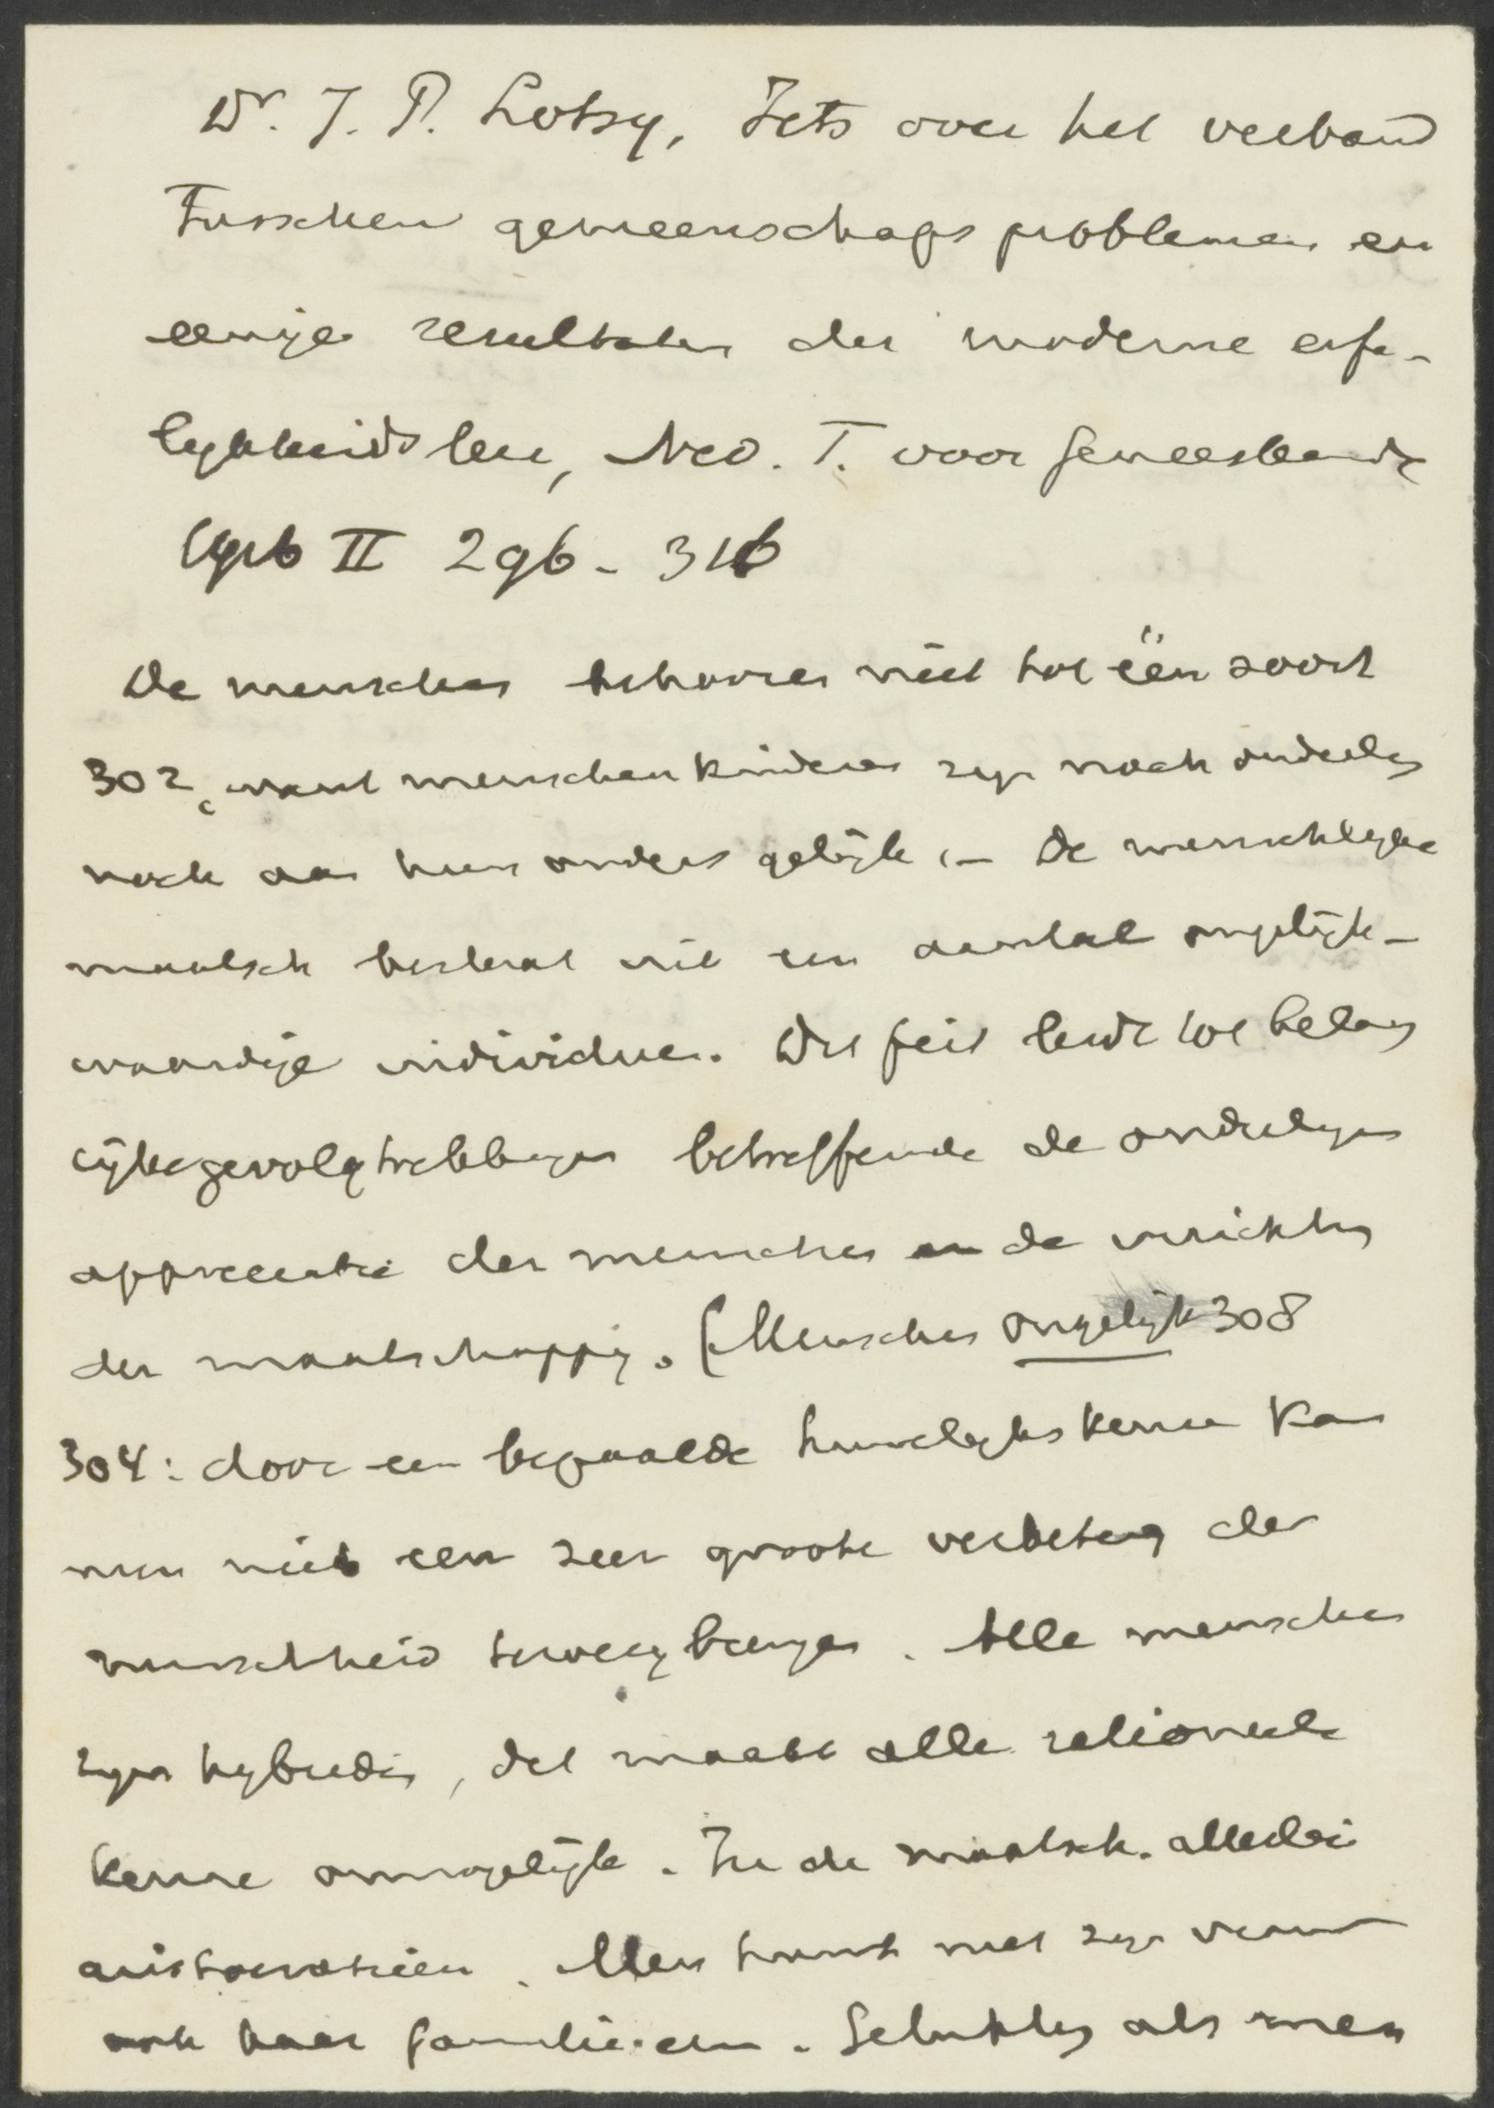 Dr. J. P. Lotsy, Iets over het verband
Tusschen gemeenschaps problemen en
eenige resultaten der moderne erfe-
lykheidsleer, Ned. T. voor Geneeskunde
II 296 - 316
De menschen behooren niet tot één soort
302, want menschenkinderen zyn noch onderling
noch aan hun ouders gelijk, - De menschlyke
maatsch bestaat uit een aantal ongelijk-
waardige individuen. Dit feit leidt tot belang
rijke gevolgtrekkingen betreffende de onderlinge
appreciatie der menschen en de inrichting
der maatschappij. (Menschen ongelijk 308
304: door een bepaalde huwelyks keuze kan
men niet een zeer groote verbetering der
menschheid teweeg brengen. Alle menschen
zyn hybriden, dat maakt alle rationeele
keuze onmogelijk. In de maatsch. allerlei
aristocratieën. Men trouwt met zyn vrouw
ook haar familie en. Gelukkig als men